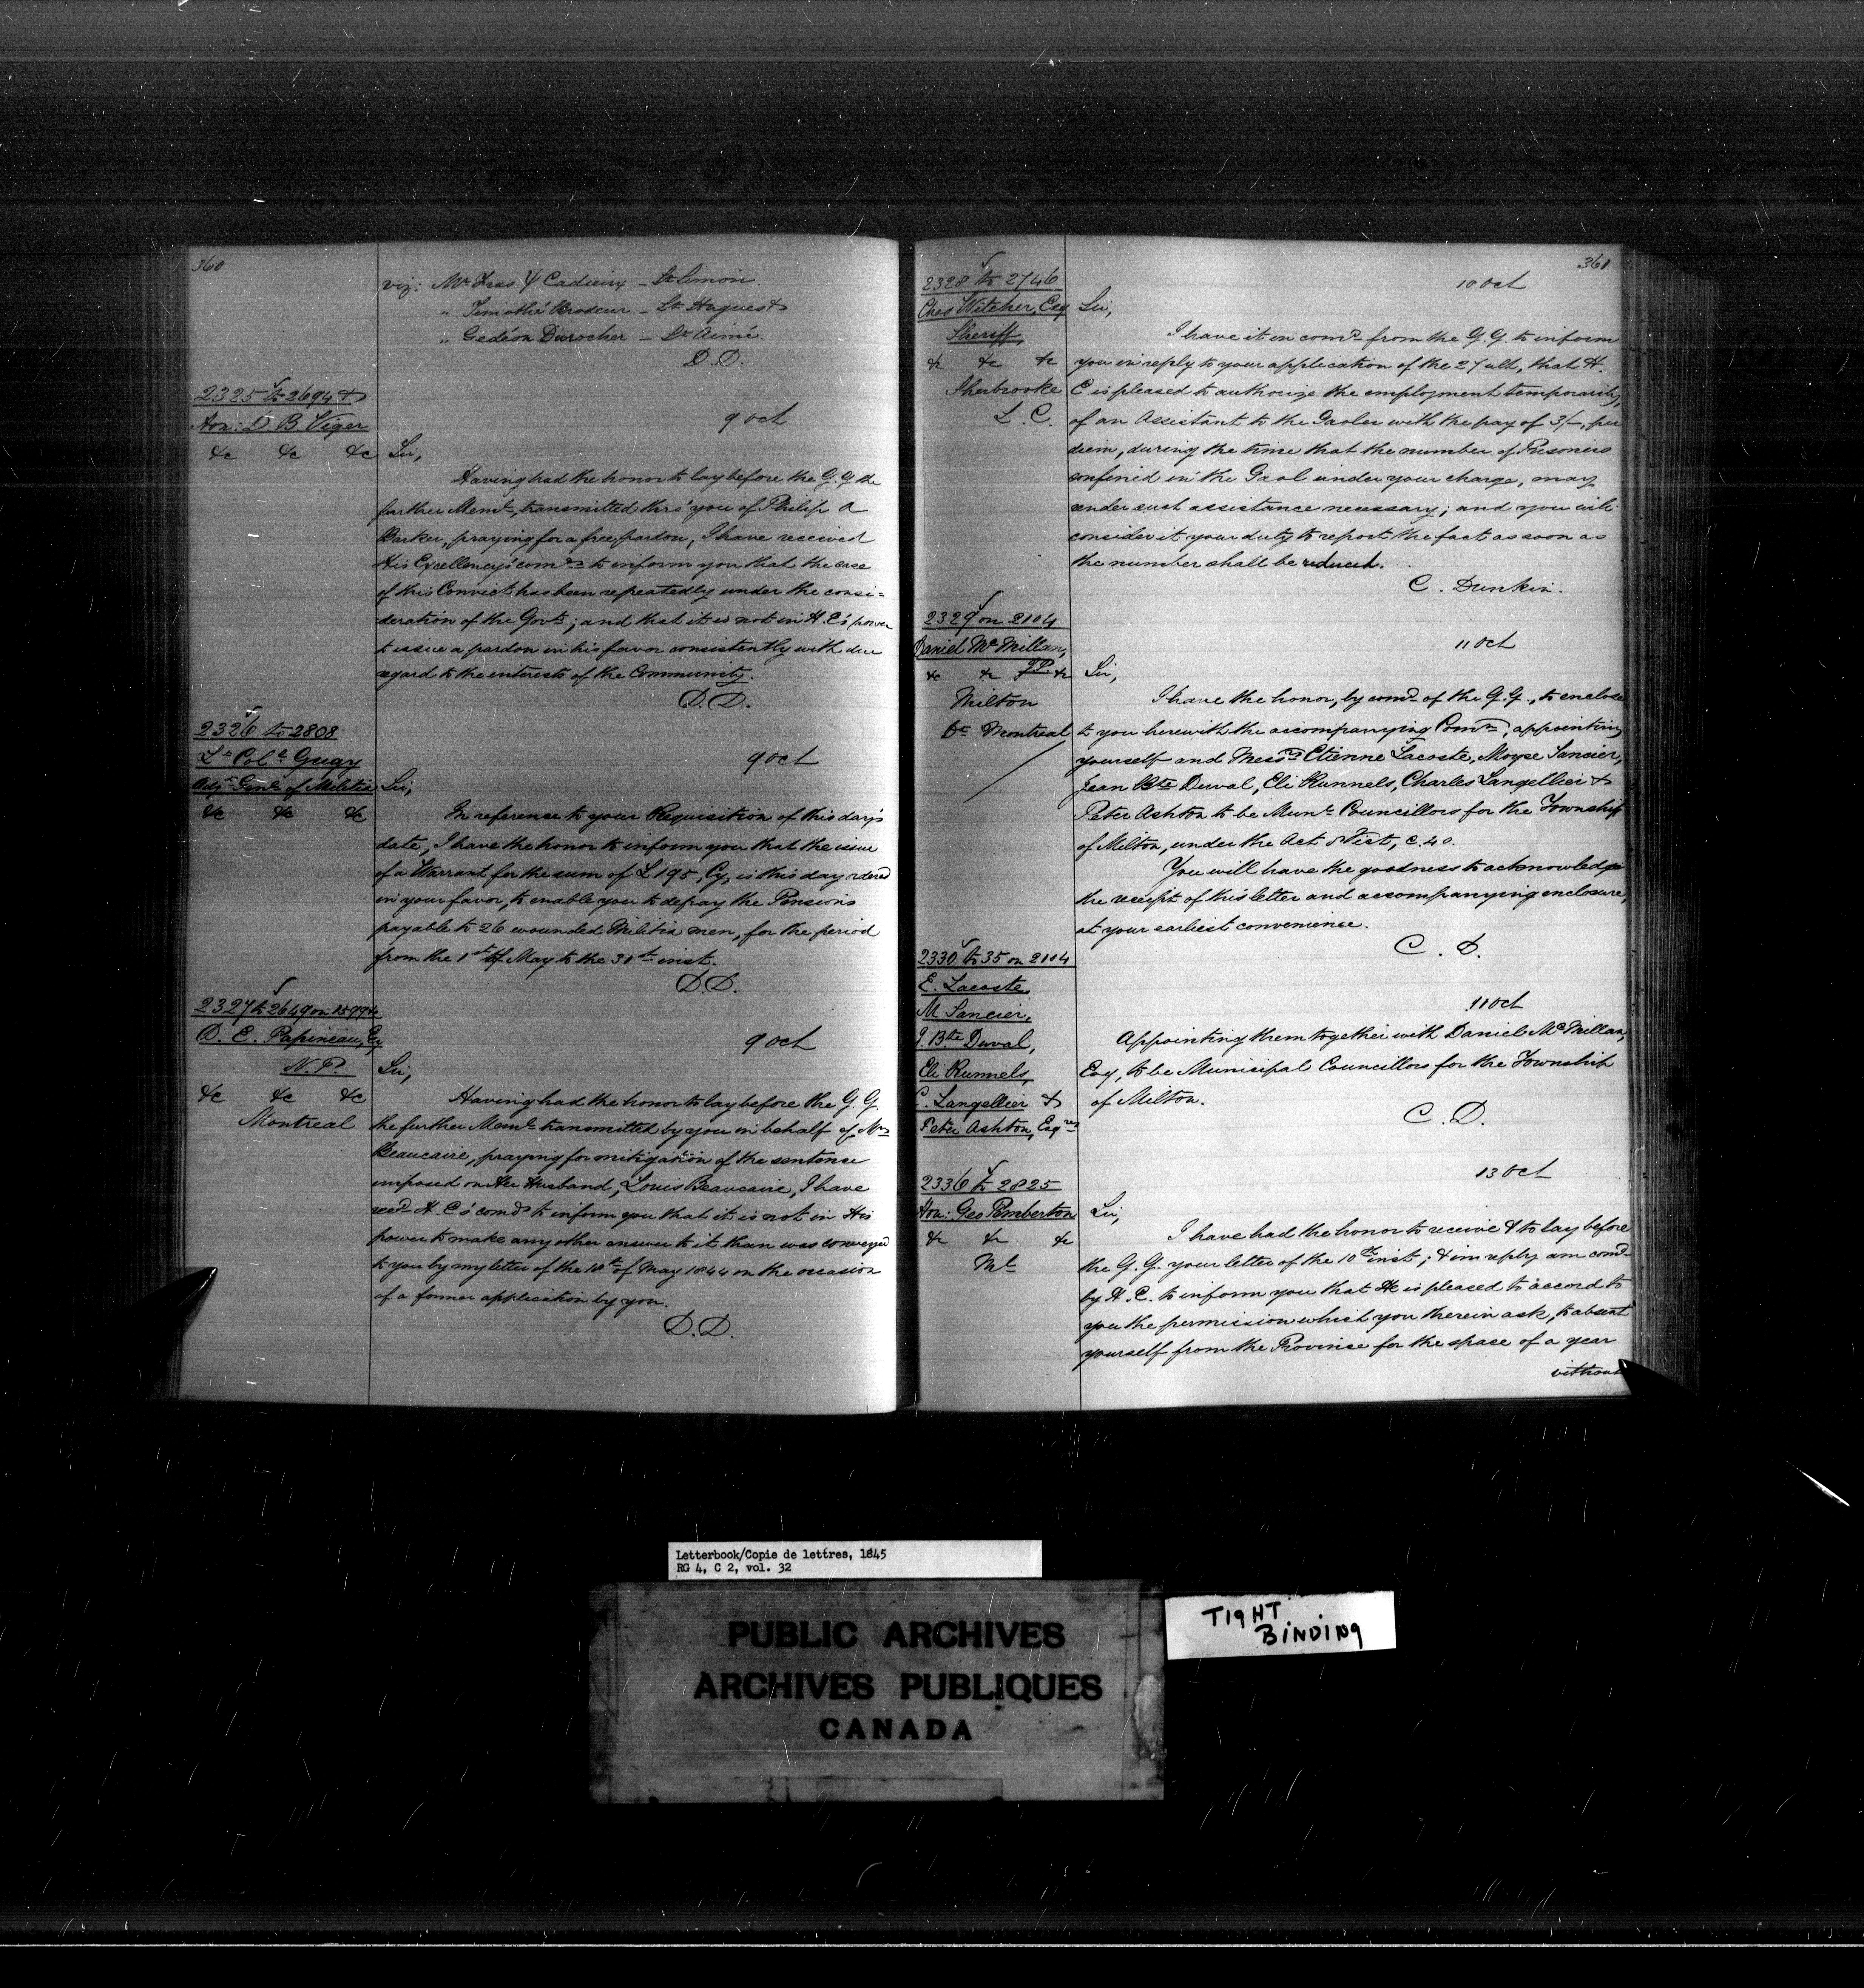 360
viz: Mr Fras Y Cadieux – St Simon.
" Timothé Brodeur – St Hugues &
" Gédéon Durocher – St Aimé.
D.D.
2325 to 2694 &
Hon: D. B. Viger
&c &c &c
9 Oct
Sir,
Having had the honor to lay before the G.G. the
further Meml, transmitted thro' you of Philip A
Barker, praying for a free pardon, I have received
His Excellency's comds to inform you that the case
of this Convict has been repeatedly under the consi=
deration of the Govt; and that it is not in H.E's power
to issue a pardon in his favor consistently with due
regard to the interests of the Community.
D.D.
2326 to 2808
Lt Coll Gugy
Adjt Genl of Militia
&c &c &c
9 Oct
Sir,
In reference to your Requisition of this day's
date, I have the honor to inform you that the issue
of a Warrant for the sum of £195, Cy, is this day
in your favor, to enable you to defray the Pensions
payable to 26 wounded Militia men, for the period
from the 1st of May to the 31st inst.
D.D.
2327 to 2649 on
D. E. Papineau, Esq
N.P.
&c &c &c
Montreal
9 Oct
Sir,
Having had the honor to lay before the G.G.
the further Meml transmitted by you in behalf of Mrs
Beaucaire, praying for mitigation of the sentence
imposed on Her Husband, Louis Beaucaire, I have
recd H.E's comds to inform you that it is not in His
power to make any other answer to it than was conveyed
to you by my letter of the 18th of May 1844 on the occasion
of a former application by you.
D.D.
361
2328 to 2746
Chas Witcher, Esq
Sheriff,
&c &c &c
Sherbrooke
L. C.
10 Oct
Sir,
I have it in comd from the G.G. to inform
you in reply to your application of the 27 ult, that H.
E is pleased to authorize the employment temporarily,
of an Assistant to the Gaoler with the pay of 3/–, per
diem, during the time that the number of Prisoners
confined in the Gaol under your charge, may
render such assistance necessary; and you will
consider it your duty to report the fact as soon as
the number shall be reduced.
C. Dunkin.
2329 on 2104
Daniel McMillan,
JP.
&c &c &c
Milton
Dt Montreal
11 Oct
Sir,
I have the honor, by comd of the G.G., to enclose
to you herewith the accompanying Comn, appointing
yourself and Messrs Etienne Lacoste, Moyse Sancier,
Jean Bte Duval, Eli Runnels, Charles Langellier &
Peter Ashton to be Munl Councillors for the Township
of Milton, under the Act 8 Vict, c. 40.
You will have the goodness to acknowledge
the receipt of this letter and accompanying enclosure,
at your earliest convenience.
C. D.
2330 to 35 on 2104
E. Lacoste,
M Sancier,
J. Bte Duval,
Eli Runnels,
C. Langellier &
Peter Ashton, Esqres
11 Oct
Appointing them together with Daniel McMillan,
Esq, to be Municipal Councillors for the Township
of Milton.
C. D.
2336 to 2825
Hon: Geo Pemberton
&c &c &c
Ml
13 Oct
Sir,
I have had the honor to receive & to lay before
the G.G. your letter of the 10th inst; & in reply am comd
by H.E. to inform you that He is pleased to accord to
you the permission which you therein ask, to absent
yourself from the Province for the space of a year
without
Letterbook/Copie de lettres, 1845
RG 4, C 2, vol. 32
PUBLIC ARCHIVES
ARCHIVES PUBLIQUES
CANADA
TIGHT
BINDING